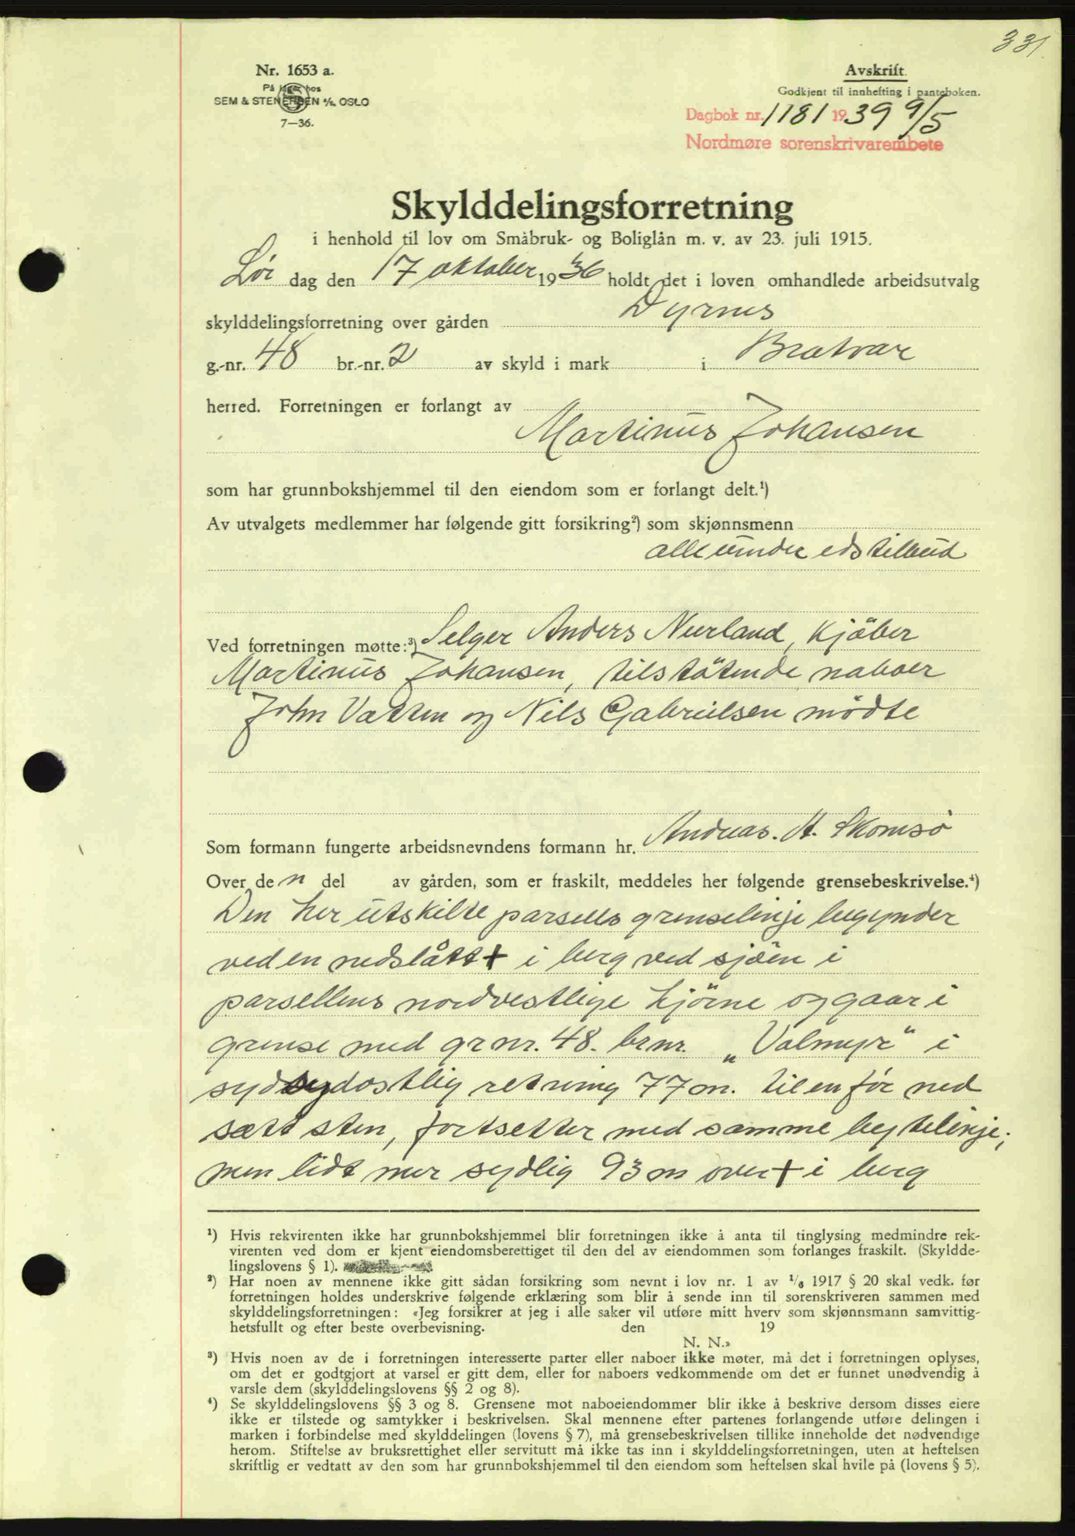 331
Nr. 1653 a.
På lager hos
SEM & STENERSEN A/S, OSLO
7—36.
Avskrift.
Godkjent til innhefting i panteboken.
Dagbok nr. 1181 1939 9/5
Nordmøre sorenskrivarembete
Skylddelingsforretning
i henhold til lov om Småbruk- og Boliglån m. v. av 23. juli 1915.
Lør dag den 17 oktober 1936 holdt det i loven omhandlede arbeidsutvalg
skylddelingsforretning over gården Dyrnes
g.-nr. 48 br.-nr. 2 av skyld i mark i Bratvær
herred. Forretningen er forlangt av
Martinus Johansen
som har grunnbokshjemmel til den eiendom som er forlangt delt.¹)
Av utvalgets medlemmer har følgende gitt forsikring²) som skjønnsmenn
alle under edstilbud
Ved forretningen møtte:³) Selger Anders Nerland, kjøber
Martinus Johansen, tilstøtende naboer
John Vatten og Nils Gabrielsen mødte
Som formann fungerte arbeidsnevndens formann hr. Andreas. A. Skomsø
Over den del av gården, som er fraskilt, meddeles her følgende grensebeskrivelse.⁴)
Den her utskilte parsells grenselinje begynder
ved en nedslått + i berg ved sjøen i
parsellens nordvestlige hjørne og gaar i
grense med gr nr. 48. br nr. „Valmyr" i
sydsydostlig retning 77 m. til en før ned
satt sten, fortsetter med samme leg telinje;
men lidt mer sydlig 93 m over + i berg
¹) Hvis rekvirenten ikke har grunnbokshjemmel blir forretningen ikke å anta til tinglysing medmindre rek-
virenten ved dom er kjent eiendomsberettiget til den del av eiendommen som forlanges fraskilt. (Skyldde-
lingslovens § 1).
²) Har noen av mennene ikke gitt sådan forsikring som nevnt i lov nr. 1 av 1/6 1917 § 20 skal vedk. før
forretningen holdes underskrive følgende erklæring som blir å sende inn til sorenskriveren sammen med
skylddelingsforretningen: «Jeg forsikrer at jeg i alle saker vil utføre mitt hverv som skjønnsmann samvittig-
hetsfullt og efter beste overbevisning. den 19
N. N.»
³) Hvis noen av de i forretningen interesserte parter eller naboer ikke møter, må det i forretningen oplyses,
om det er godtgjort at varsel er gitt dem, eller for naboers vedkommende om det er funnet unødvendig å
varsle dem (skylddelingslovens §§ 2 og 8).
⁴) Se skylddelingslovens §§ 3 og 8. Grensene mot naboeiendommer blir ikke å beskrive dersom disses eiere
ikke er tilstede og samtykker i beskrivelsen. Skal mennene efter partenes forlangende utføre delingen i
marken i forbindelse med skylddelingen (lovens § 7), må grensebeskrivelsen tillike inneholde det nødvendige
herom. Stiftelse av bruksrettighet eller servitutt må ikke tas inn i skylddelingsforretningen, uten at heftelsen
skriftlig er vedtatt av den som har grunnbokshjemmel til den eiendom som heftelsen skal hvile på (lovens § 5).